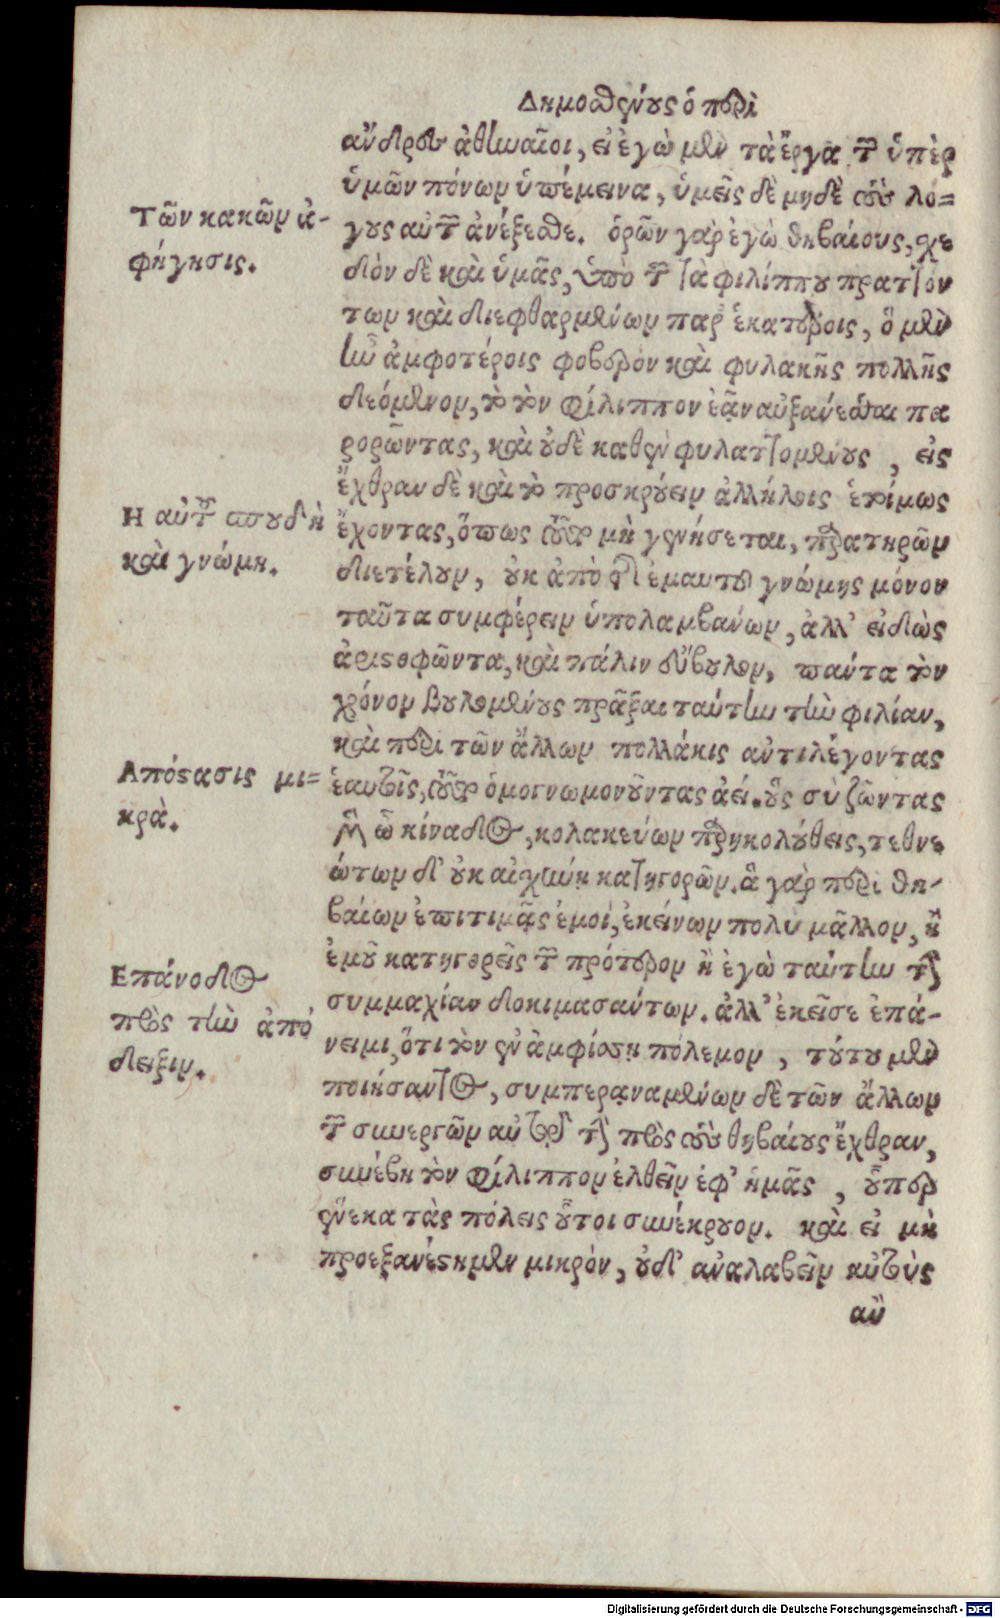 Δημοσθένους ὁ περὶ
ἄνδρες ἀθηναῖοι, εἰ ἐγὼ μὲν τὰ ἔργα τῶν ὑπὲρ
ὑμῶν πόνων ὑπέμεινα, ὑμεῖς δὲ μηδὲ τοὺς λό=
γους αὐτῶν ἀνέξεσθε. ὁρῶν γὰρ ἐγὼ θηβαίους, σχε
δὸν δὲ καὶ ὑμᾶς, ὑπὸ τῶν τὰ φιλίππου πραττόν
των καὶ διεφθαρμένων παρ' ἑκατέροις, ὃ μὲν
ἦν ἀμφοτέροις φοβερὸν καὶ φυλακῆς πολλῆς
δεόμενον, τὸ τὸν φίλιππον ἐᾷν αὐξάνεσθαι πα
ρορῶντας, καὶ οὐδὲ καθὲν φυλαττομένους, εἰς
ἔχθραν δὲ καὶ τὸ προσκρούειν ἀλλήλοις ἑτοίμως
ἔχοντας, ὅπως τοῦτο μὴ γενήσεται, παρατηρῶν
διετέλουν, οὐκ ἀπὸ τῆς ἐμαυτοῦ γνώμης μόνον
ταῦτα συμφέρειν ὑπολαμβάνων, ἀλλ' εἰδὼς
ἀριστοφῶντα, καὶ πάλιν εὔβουλον, πάντα τὸν
χρόνον βουλομένους πρᾶξαι ταύτην τὴν φιλίαν,
καὶ περὶ τῶν ἄλλων πολλάκις ἀντιλέγοντας
ἑαυτοῖς, τοῦτο ὁμογνωμονοῦντας ἀεί. οὓς σὺ ζῶντας
μὲν ὦ κίναδος, κολακεύων παρηκολούθεις, τεθνε
ώτων δ' οὐκ αἰσχύνῃ κατηγορῶν. ἃ γὰρ περὶ θη-
βαίων ἐπιτιμᾷς ἐμοί, ἐκείνων πολὺ μᾶλλον, ἢ
ἐμοῦ κατηγορεῖς τῶν πρότερον ἢ ἐγὼ ταύτην τὴν
συμμαχίαν δοκιμασάντων. ἀλλ' ἐκεῖσε ἐπά-
νειμι, ὅτι τὸν ἐν ἀμφίσσῃ πόλεμον, τούτου μὲν
ποιήσαντος, συμπεραναμένων δὲ τῶν ἄλλων
τῶν συνεργῶν αὐτοῦ τὴν πρὸς τοὺς θηβαίους ἔχθραν,
συνέβη τὸν φίλιππον ἐλθεῖν ἐφ' ἡμᾶς, οὗπερ
ἕνεκα τὰς πόλεις οὗτοι συνέκρουον. καὶ εἰ μὴ
προεξανέστημεν μικρὸν, οὐδ' ἀναλαβεῖν αὐτοὺς
ἂν
Τῶν κακῶν ἀ-
φήγησις.
Η αὐτοῦ σπουδὴ
καὶ γνώμη.
Απόστασις μι=
κρὰ.
Επάνοδος
πρὸς τὴν ἀπό
δειξιν.
Digitalisierung gefördert durch die Deutsche Forschungsgemeinschaft - DFG